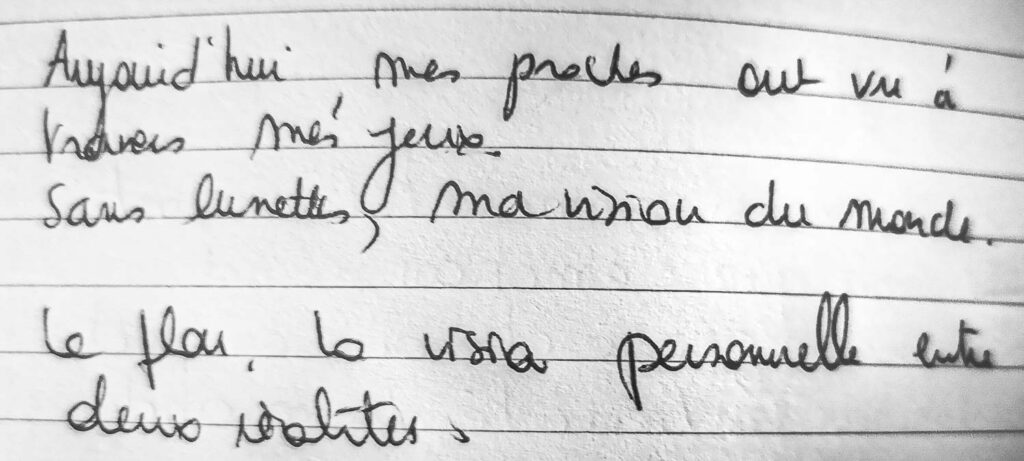 Aujourd'hui mes proches ont vu à
travers mes yeux.
Sans lunettes, ma vision du monde.
Le flou, la vision personnelle entre
deux réalités.